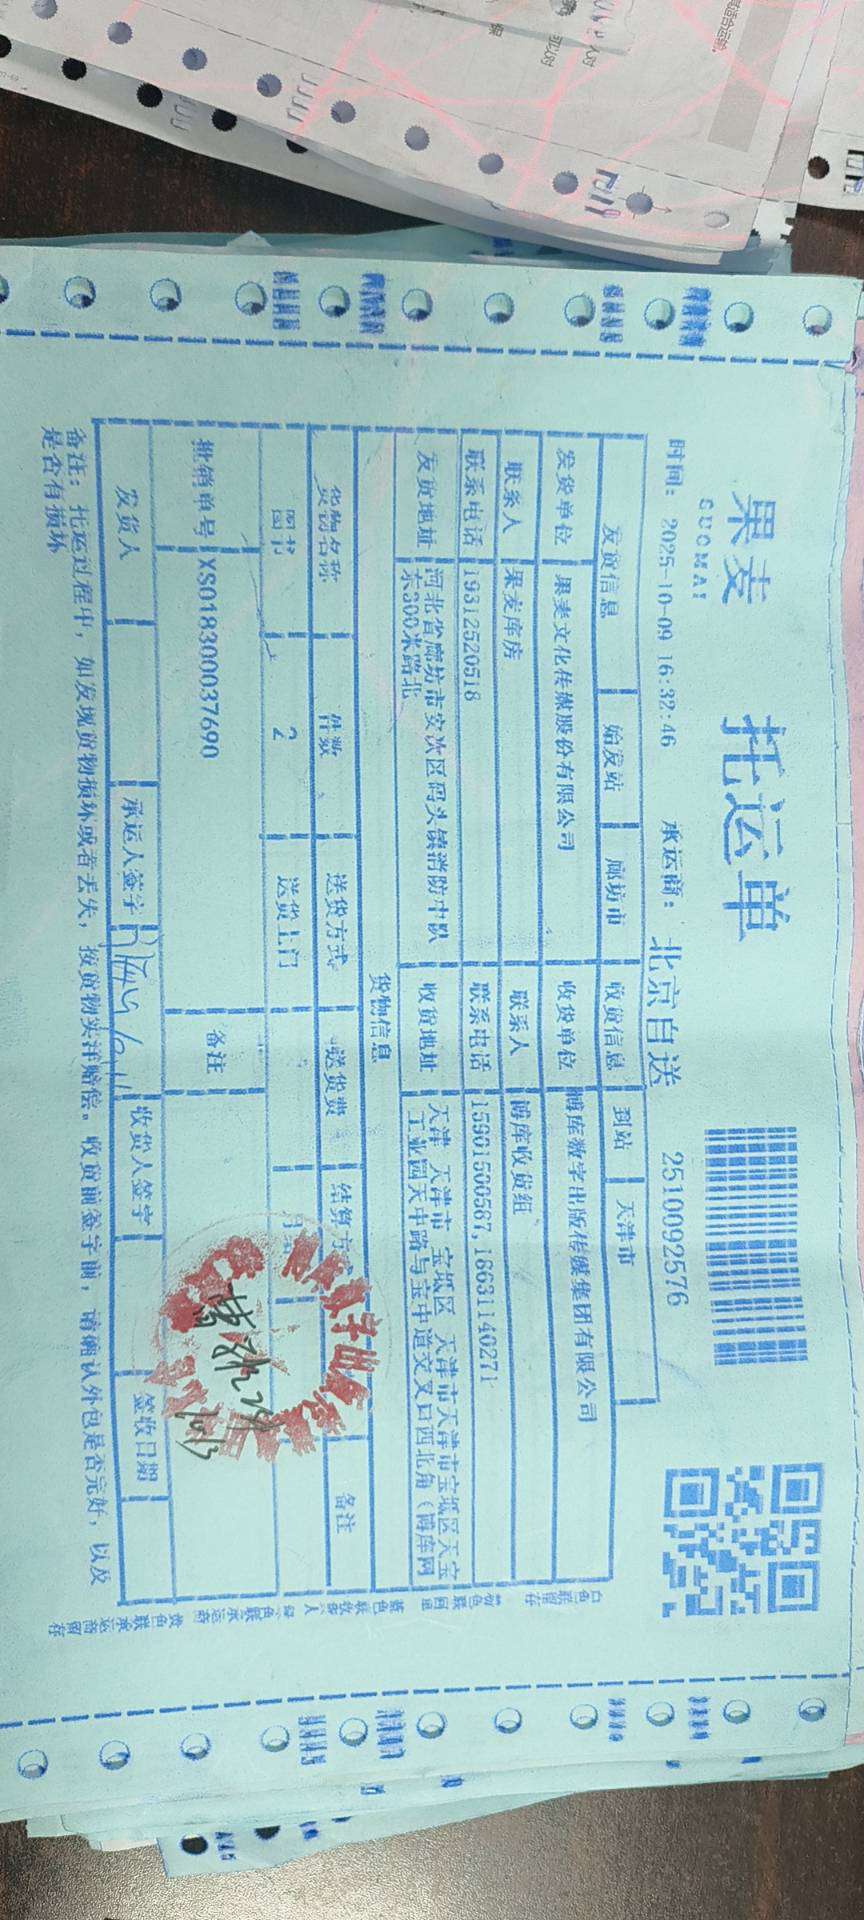 果麦
GUOMAI
托运单
时间： 2025-10-09 16:32:46 承运商： 北京自送 2510092576
发货信息 始发站 廊坊市 收货信息 到站 天津市
发货单位 果麦文化传媒股份有限公司 收货单位 博库数字出版传媒集团有限公司
联系人 果麦库房 联系人 博库收货组
联系电话 19312520518 联系电话 15901500587,18631140271
发货地址 河北省廊坊市安次区码头镇消防中队 收货地址 天津 天津市 宝坻区 天津市天津市宝坻区天宝
东300米路北 工业园天中路与宝中道交叉口西北角（博库网
货物信息
货物名称 件数 送货方式 送货费 结算方式 备注
图书 2 送货上门
批销单号 XS018300037690 备注
发货人 承运人签字 收货人签字 签收日期
备注： 托运过程中，如发现货物损坏或者丢失，按货物实洋赔偿。收货前签字前，请确认外包是否完好，以及
是否有损坏